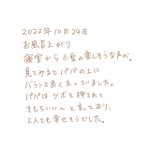 2022年10月24日
お風呂上がり
寝室から小望の楽しそうな声が。
見てみるとパパの上に
バランス良く立っていました。
パパは ツボを押されて
きもちいい〜 と言っており、
2人とも幸せそうでした。